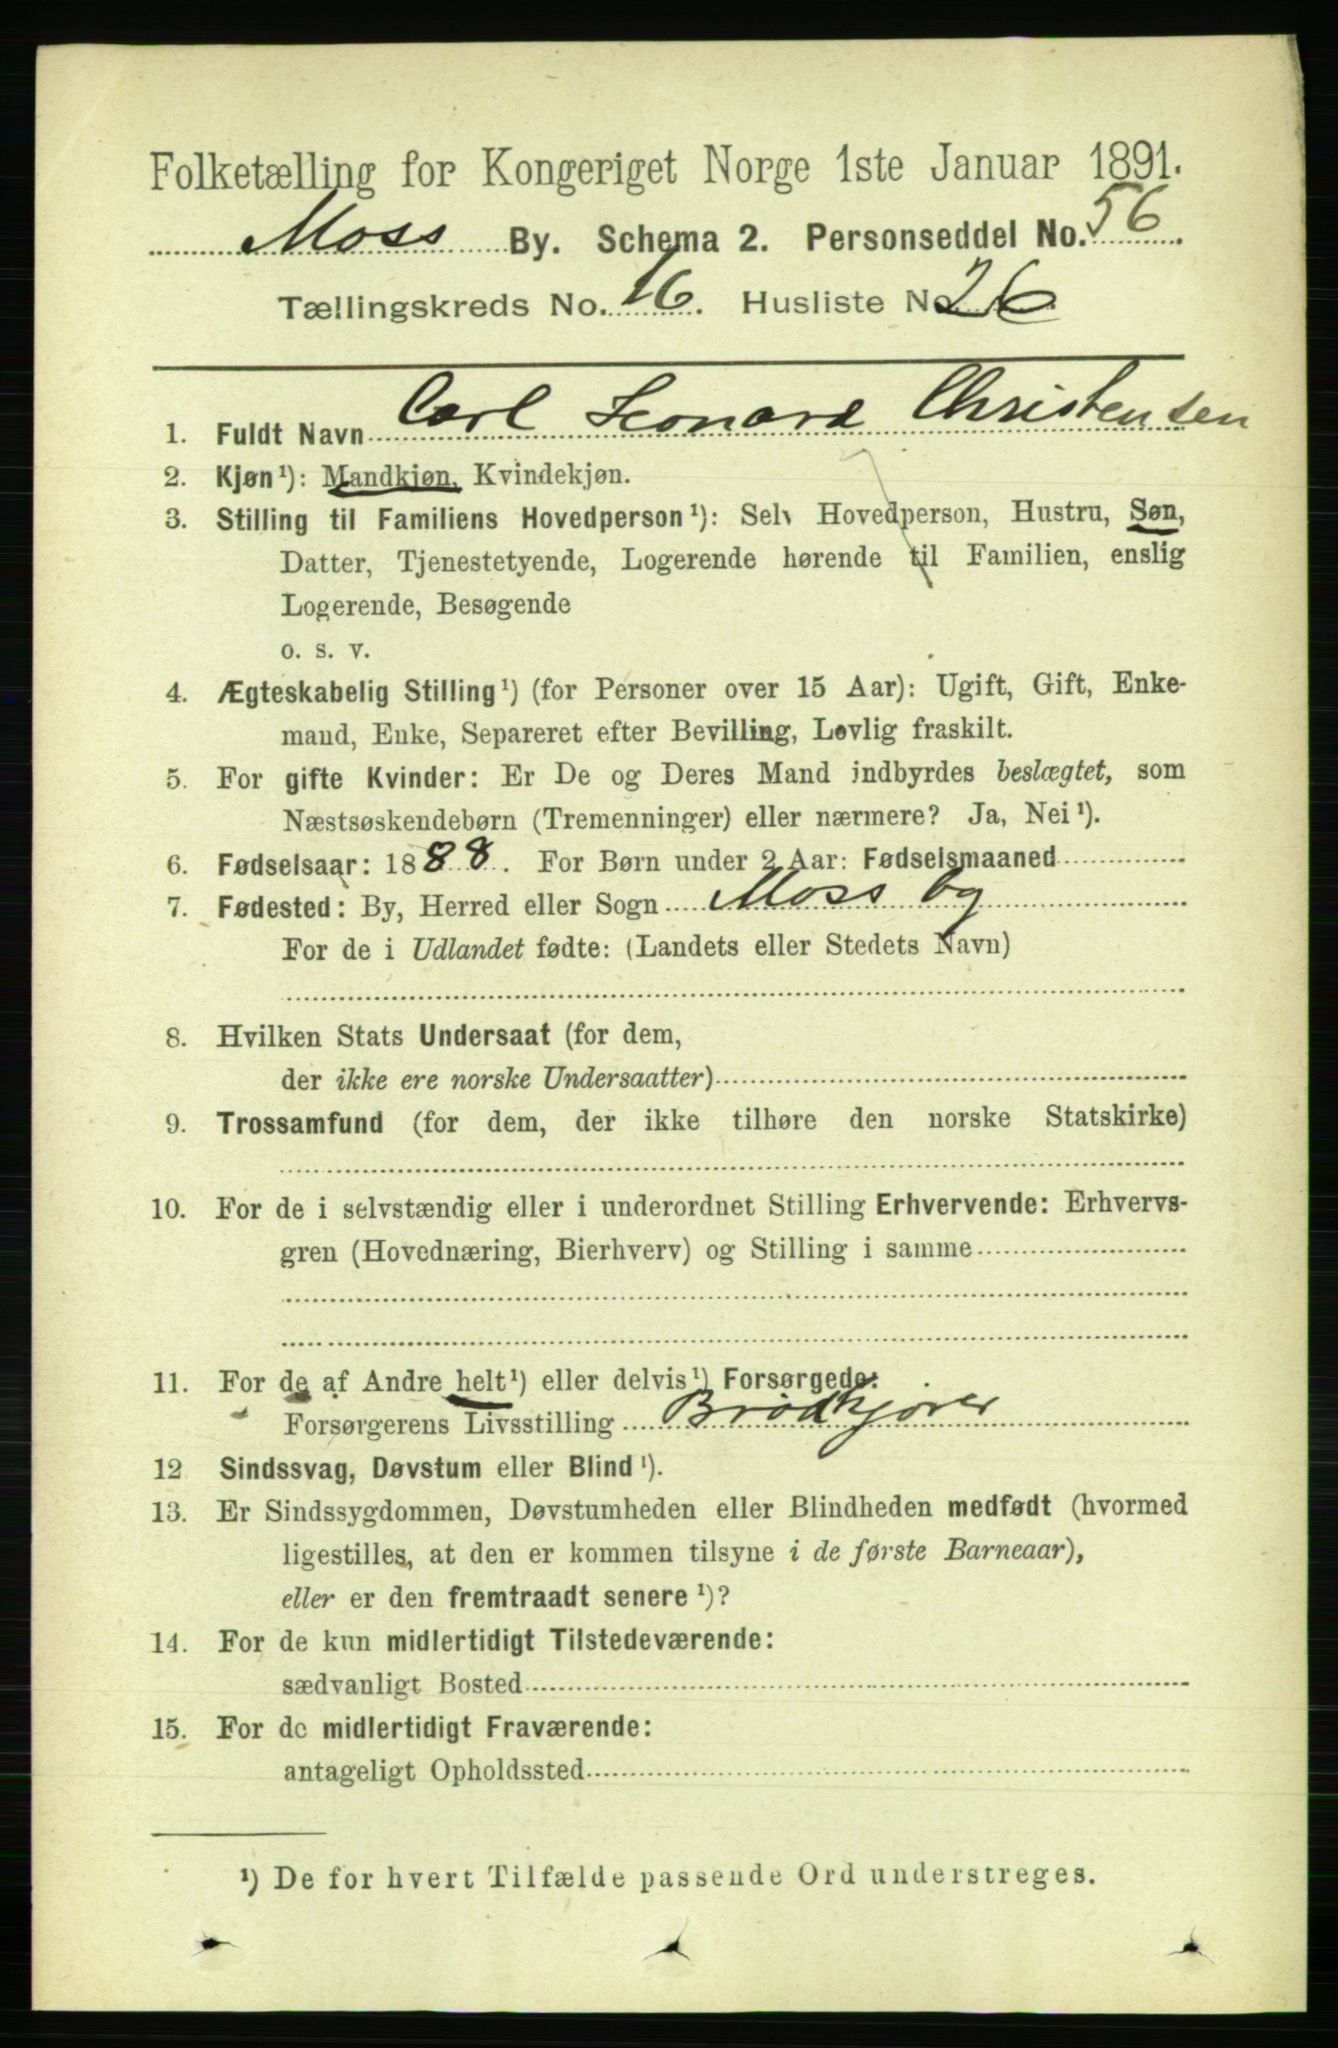 Folketælling for Kongeriget Norge 1ste Januar 1891.
Moss By. Schema 2. Personseddel No. 56
Tællingskreds No. 16. Husliste No. 26
1. Fuldt Navn Carl Leonard Christensen
2. Kjøn¹): Mandkjøn, Kvindekjøn.
3. Stilling til Familiens Hovedperson¹): Selv Hovedperson, Hustru, Søn,
Datter, Tjenestetyende, Logerende hørende til Familien, enslig
Logerende, Besøgende
o. s. v.
4. Ægteskabelig Stilling¹) (for Personer over 15 Aar): Ugift, Gift, Enke-
mand, Enke, Separeret efter Bevilling, Lovlig fraskilt.
5. For gifte Kvinder: Er De og Deres Mand indbyrdes beslægtet, som
Næstsøskendebørn (Tremenninger) eller nærmere? Ja, Nei¹).
6. Fødselsaar: 1888. For Børn under 2 Aar: Fødselsmaaned
7. Fødested: By, Herred eller Sogn Moss By
For de i Udlandet fødte: (Landets eller Stedets Navn)
8. Hvilken Stats Undersaat (for dem,
der ikke ere norske Undersaatter)
9. Trossamfund (for dem, der ikke tilhøre den norske Statskirke)
10. For de i selvstændig eller i underordnet Stilling Erhvervende: Erhvervs-
gren (Hovednæring, Bierhverv) og Stilling i samme
11. For de af Andre helt¹) eller delvis¹) Forsørgede:
Forsørgerens Livsstilling Brødkjører
12 Sindssvag, Døvstum eller Blind¹).
13. Er Sindssygdommen, Døvstumheden eller Blindheden medfødt (hvormed
ligestilles, at den er kommen tilsyne i de første Barneaar),
eller er den fremtraadt senere¹)?
14. For de kun midlertidigt Tilstedeværende:
sædvanligt Bosted
15. For de midlertidigt Fraværende:
antageligt Opholdssted
¹) De for hvert Tilfælde passende Ord understreges.